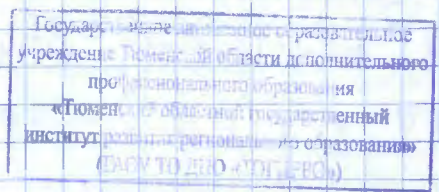 Государственное автономное образовательное
учреждение Тюменской области дополнительного
профессионального образования
«Тюменский областной государственный
институт развития регионального образования»
(ГАОУ ТО ДПО «ТОГИРРО»)